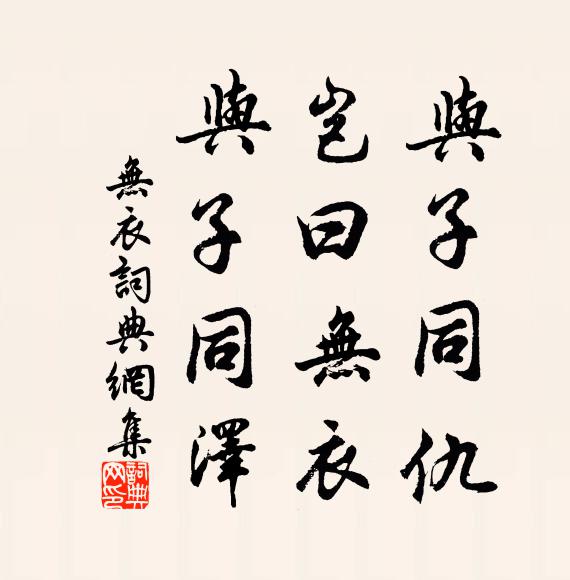 與子同仇
豈曰無衣
與子同澤
無衣詞典網集
詞典網印